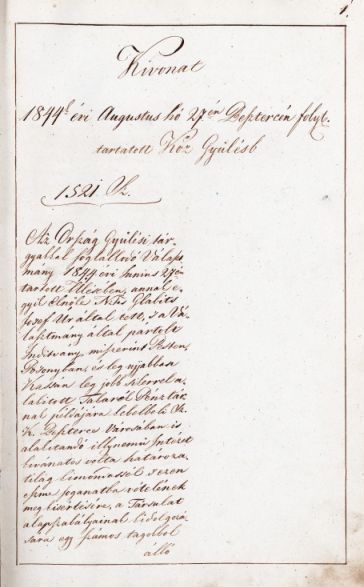 1.
Kivonat
1844k évi Augustus hó 27én Besztercén folyt.
tartatott Köz Gyűlésb
1521 Sz.
Az Ország Gyűlési tár-
gyakkal foglalkodó Válasz-
mány 1844 évi Junius 27én
tartott Ülésében, annak e-
gyik Elnöke Nts Glabits
Josef Ur által tett, s a Vá-
lasztmány által pártolt
Inditvány, miszerint Pesten
Posonyban, és leg ujjabban
Kassán leg jobb sikerrel a-
lakitott Takaról Pénztár-
nak példájára kebelbeli Sz.
K. Besztercze Városában is
alakitandó illynemű Intézet
kivánatos volta határoza-
tilag kimondassék s ezen
eszme foganatba vételének
megkisértésére, a Társulat
alapszabályainak kidolgozá-
sára egy számos tagokból
álló